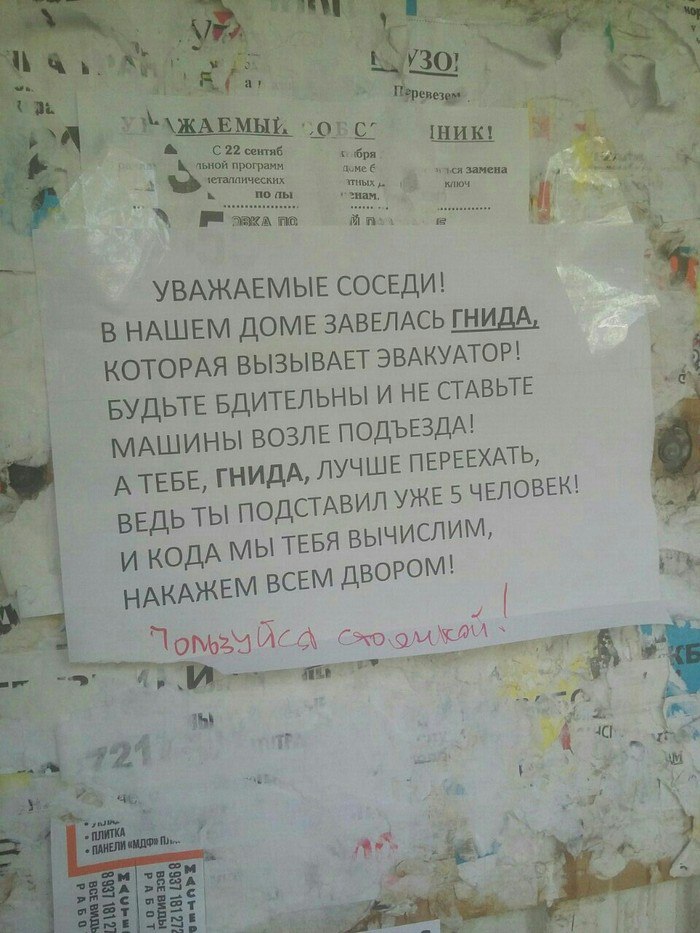 УЗО!
Перевезем
УВАЖАЕМЫЙ СОБС НИК!
С 22 сентяб ября
льной программ доме б ться замена
металлических атных ключ
по
УВАЖАЕМЫЕ СОСЕДИ!
В НАШЕМ ДОМЕ ЗАВЕЛАСЬ ГНИДА,
КОТОРАЯ ВЫЗЫВАЕТ ЭВАКУАТОР!
БУДЬТЕ БДИТЕЛЬНЫ И НЕ СТАВЬТЕ
МАШИНЫ ВОЗЛЕ ПОДЪЕЗДА!
А ТЕБЕ, ГНИДА, ЛУЧШЕ ПЕРЕЕХАТЬ,
ВЕДЬ ТЫ ПОДСТАВИЛ УЖЕ 5 ЧЕЛОВЕК!
И КОДА МЫ ТЕБЯ ВЫЧИСЛИМ,
НАКАЖЕМ ВСЕМ ДВОРОМ!
Пользуйся стоянкой!
721
• ПЛИТКА
• ПАНЕЛИ «МДФ»
МАСТЕ
ВСЕ ВИДЫ
РАБОТ
8 937 181 272
МАСТЕ
ВСЕ ВИДЫ
РАБО
8 937 181 27